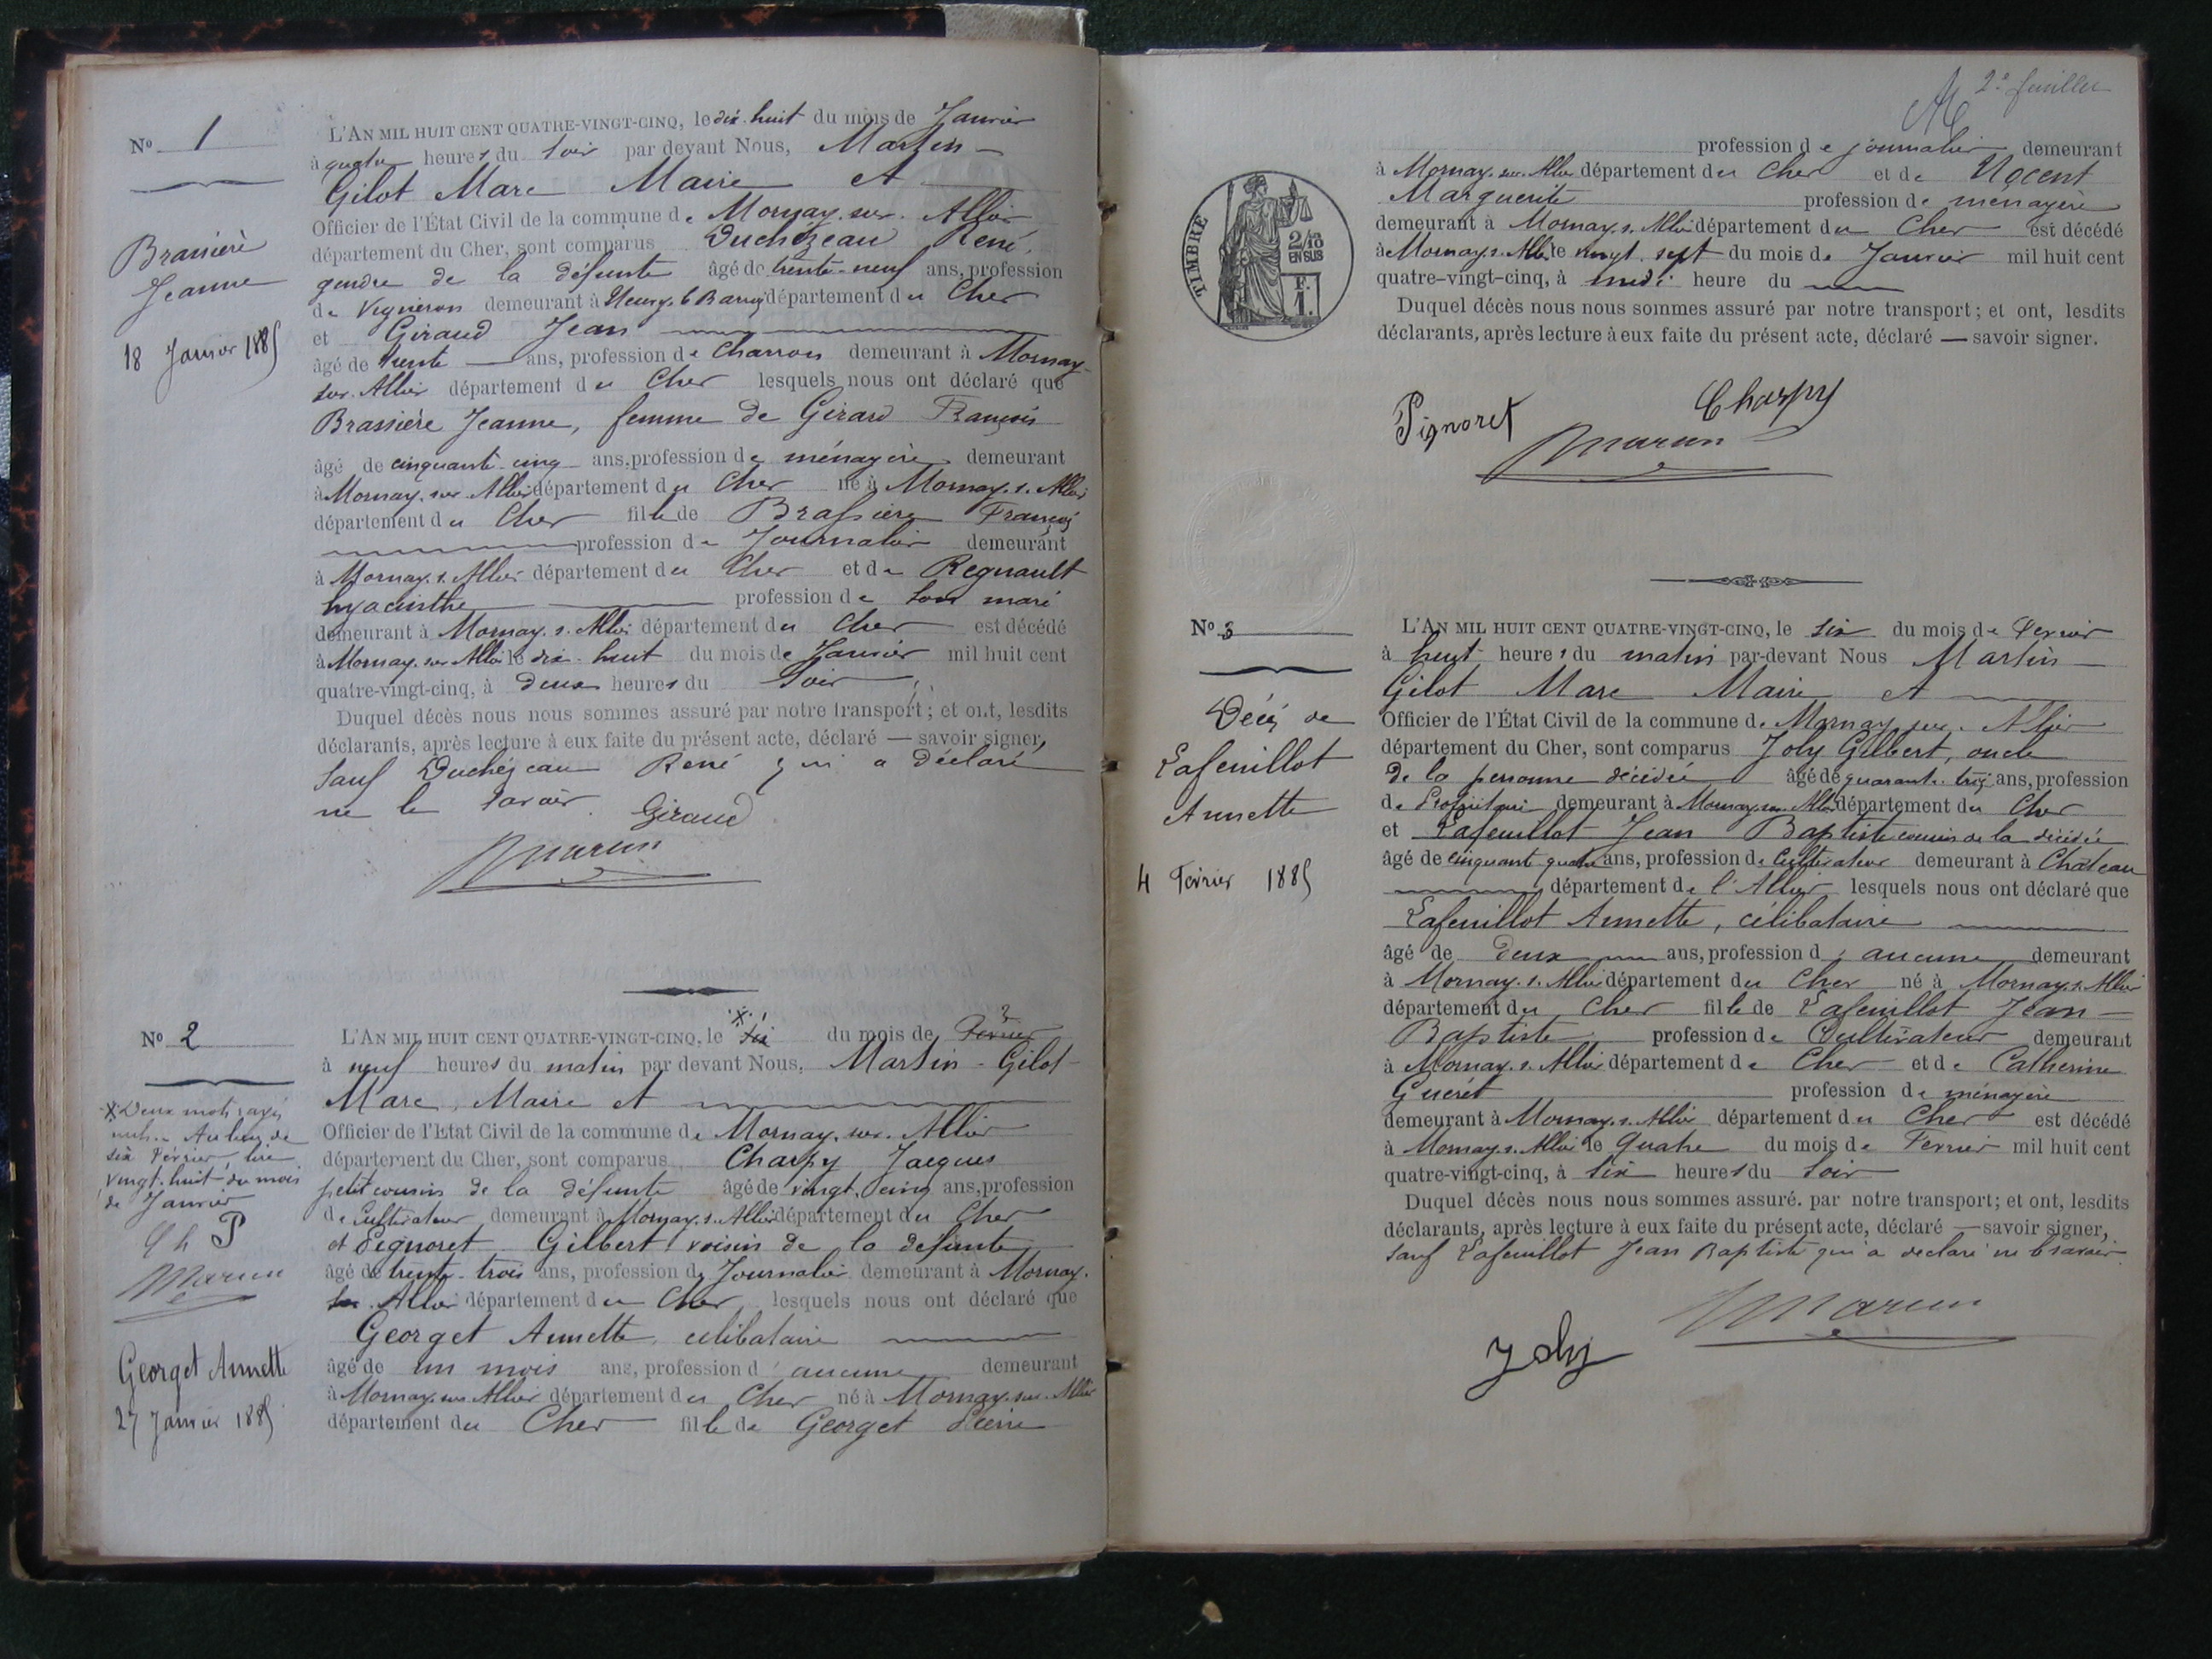 No 1
Brassière
Jeanne
18 Janvier 1885
L'AN MIL HUIT CENT QUATRE-VINGT-CINQ, le dix-huit du mois de Janvier
à quatre heures du soir par devant Nous, Martin-
Gilot Marc Maire et
Officier de l'État Civil de la commune de Mornay-sur-Allier
département du Cher, sont comparus Duchézeau René
gendre de la défunte âgé de trente-neuf ans, profession
de Vigneron demeurant à Neuvy-le-Barrois département du Cher
et Giraud Jean
âgé de trente ans, profession de Charron demeurant à Mornay-
sur-Allier département du Cher lesquels nous ont déclaré que
Brassière Jeanne, femme de Girard François
âgé de cinquante-cinq ans, profession de ménagère demeurant
à Mornay-sur-Allier département du Cher né à Mornay-s-Allier
département du Cher fille de Brassière François
profession de Journalier demeurant
à Mornay-s-Allier département du Cher et de Regnault
hyacinthe profession de son mari
demeurant à Mornay-s-Allier département du Cher est décédé
à Mornay-sur-Allier le dix-huit du mois de Janvier mil huit cent
quatre-vingt-cinq, à deux heures du soir
Duquel décès nous nous sommes assuré par notre transport; et ont, lesdits
déclarants, après lecture à eux faite du présent acte, déclaré — savoir signer,
sauf Duchézeau René qui a déclaré
ne le savoir. Giraud
Martin
No 2
X Deux mots rayés
nuls. Au lieu de
six Février, lire
vingt-huit du mois
de Janvier
Ch P
Martin
Georget Annette
27 Janvier 1885
L'AN MIL HUIT CENT QUATRE-VINGT-CINQ, le six du mois de Février
à neuf heures du matin par devant Nous, Martin-Gilot
Marc, Maire et
Officier de l'État Civil de la commune de Mornay-sur-Allier
département du Cher, sont comparus Charpy Jacques
petit cousin de la défunte âgé de vingt-cinq ans, profession
de Cultivateur demeurant à Mornay-s-Allier département du Cher
et Pignoret Gilbert voisin de la défunte
âgé de trente-trois ans, profession de Journalier demeurant à Mornay-
sur-Allier département du Cher lesquels nous ont déclaré que
Georget Annette, célibataire
âgé de un mois ans, profession d'aucune demeurant
à Mornay-sur-Allier département du Cher né à Mornay-sur-Allier
département du Cher fille de Georget Pierre
2e feuillet
profession de journalier demeurant
à Mornay-sur-Allier département du Cher et de Nocent
Marguerite profession de ménagère
demeurant à Mornay-s-Allier département du Cher est décédé
à Mornay-s-Allier le vingt-sept du mois de Janvier mil huit cent
quatre-vingt-cinq, à midi heure du
Duquel décès nous nous sommes assuré par notre transport; et ont, lesdits
déclarants, après lecture à eux faite du présent acte, déclaré — savoir signer.
TIMBRE
2/10
EN SUS
F.
1.
Pignoret Charpy
Martin
No 3
Décès de
Lafeuillot
Annette
4 Février 1885
L'AN MIL HUIT CENT QUATRE-VINGT-CINQ, le six du mois de Février
à huit heures du matin par-devant Nous Martin-
Gilot Marc Maire et
Officier de l'État Civil de la commune de Mornay-sur-Allier
département du Cher, sont comparus Joly Gilbert, oncle
de la personne décédée âgé de quarante-trois ans, profession
de Propriétaire demeurant à Mornay-sur-Allier département du Cher
et Lafeuillot Jean Baptiste cousin de la décédée
âgé de cinquante-quatre ans, profession de Cultivateur demeurant à Château
département de l'Allier lesquels nous ont déclaré que
Lafeuillot Annette, célibataire
âgé de deux ans, profession d'aucune demeurant
à Mornay-s-Allier département du Cher né à Mornay-s-Allier
département du Cher fille de Lafeuillot Jean-
Baptiste profession de Cultivateur demeurant
à Mornay-s-Allier département de Cher et de Catherine
Guéret profession de ménagère
demeurant à Mornay-s-Allier département du Cher est décédé
à Mornay-s-Allier le Quatre du mois de Février mil huit cent
quatre-vingt-cinq, à six heures du soir
Duquel décès nous nous sommes assuré. par notre transport; et ont, lesdits
déclarants, après lecture à eux faite du présent acte, déclaré — savoir signer,
sauf Lafeuillot Jean Baptiste qui a déclaré ne le savoir.
Martin
Joly